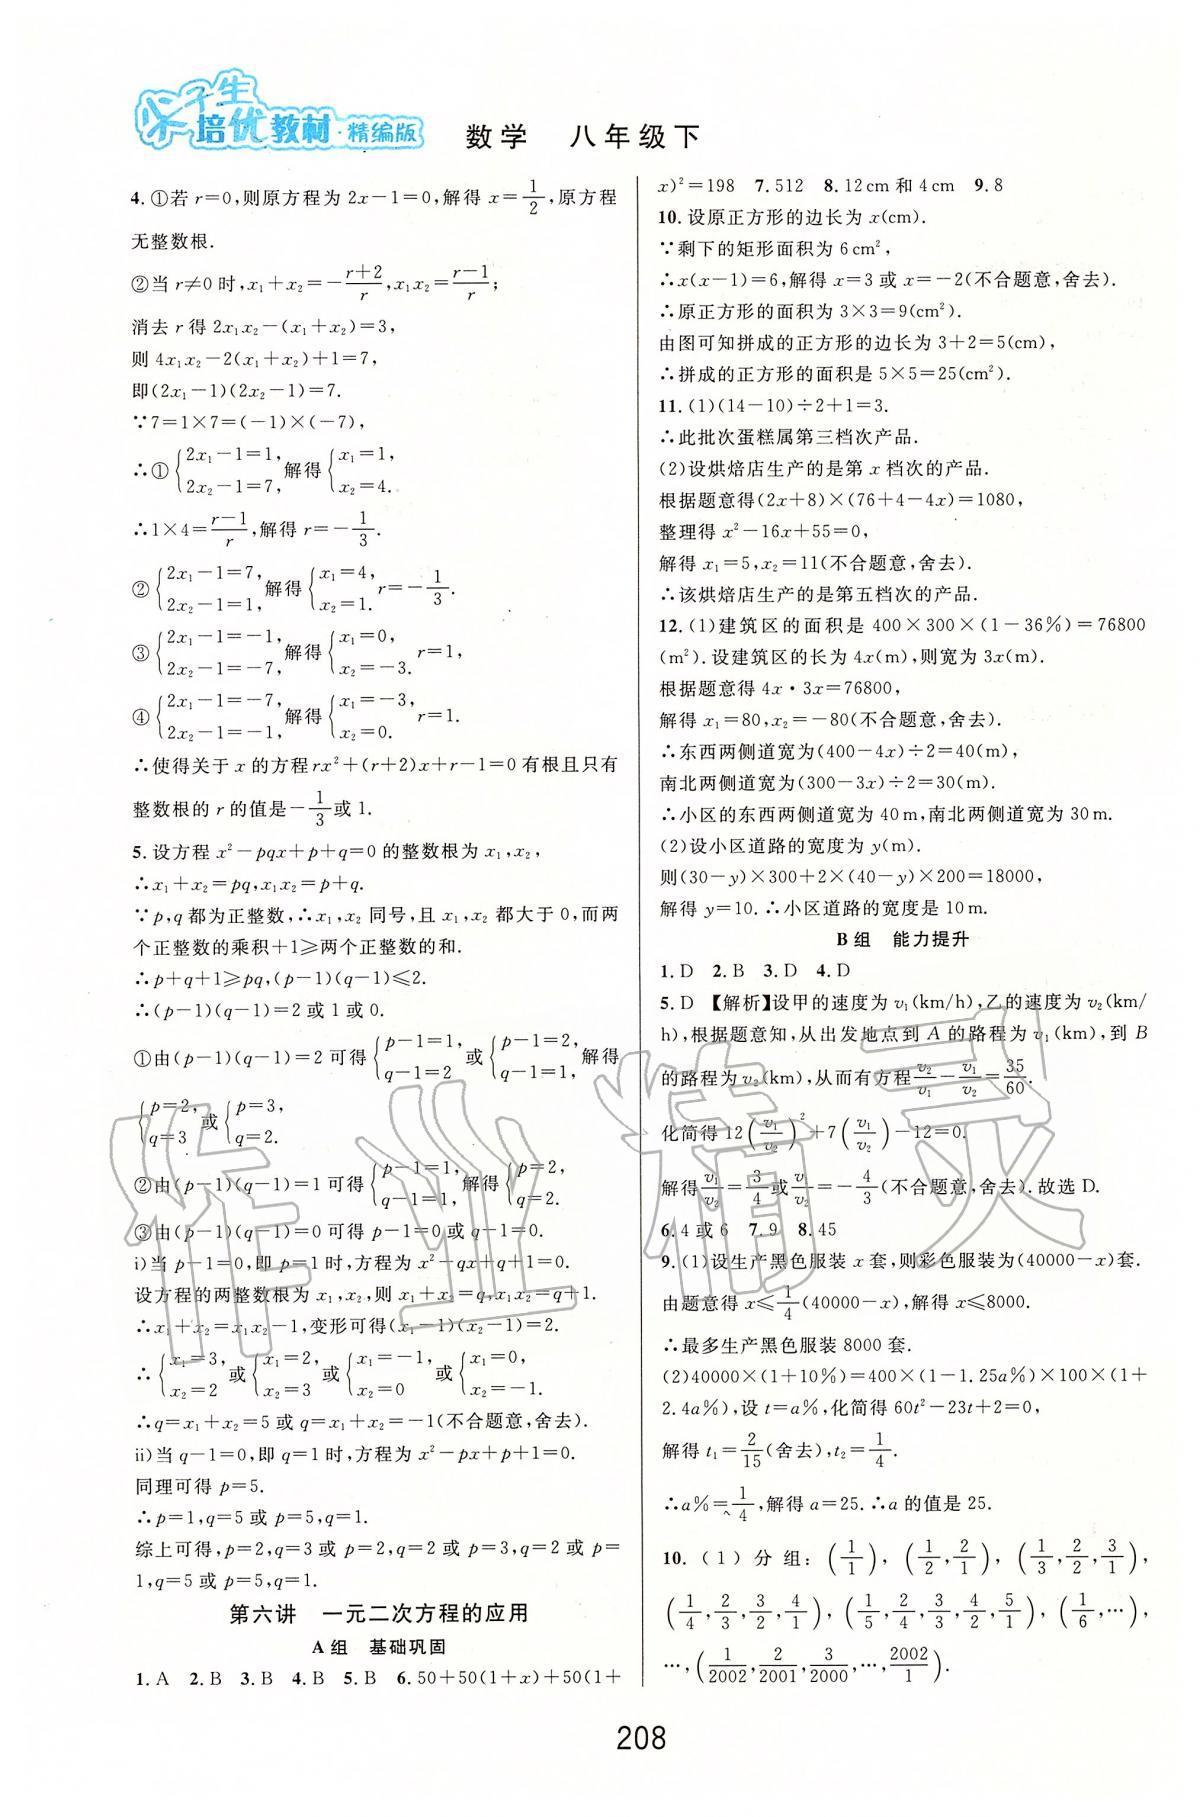 尖子生
培优教材·精编版
数学 八年级下
4. ①若 r=0,则原方程为 2x-1=0,解得 x=1/2,原方程
无整数根.
②当 r≠0 时,x₁+x₂=-(r+2)/r,x₁x₂=(r-1)/r;
消去 r 得 2x₁x₂-(x₁+x₂)=3,
则 4x₁x₂-2(x₁+x₂)+1=7,
即(2x₁-1)(2x₂-1)=7.
∵7=1×7=(-1)×(-7),
∴①{2x₁-1=1, 2x₂-1=7,解得{x₁=1, x₂=4.
∴1×4=(r-1)/r,解得 r=-1/3.
②{2x₁-1=7, 2x₂-1=1,解得{x₁=4, x₂=1. r=-1/3.
③{2x₁-1=-1, 2x₂-1=-7,解得{x₁=0, x₂=-3. r=1,
④{2x₁-1=-7, 2x₂-1=-1,解得{x₁=-3, x₂=0. r=1.
∴使得关于 x 的方程 rx²+(r+2)x+r-1=0 有根且只有
整数根的 r 的值是-1/3或 1.
5. 设方程 x²-pqx+p+q=0 的整数根为 x₁,x₂,
∴x₁+x₂=pq,x₁x₂=p+q.
∵p,q 都为正整数,∴x₁,x₂ 同号,且 x₁,x₂ 都大于 0,而两
个正整数的乘积+1≥两个正整数的和.
∴p+q+1≥pq,(p-1)(q-1)≤2.
∴(p-1)(q-1)=2 或 1 或 0.
①由(p-1)(q-1)=2 可得{p-1=1, q-1=2 或{p-1=2, q-1=1,解得
{p=2, q=3 或{p=3, q=2.
②由(p-1)(q-1)=1 可得{p-1=1, q-1=1,解得{p=2, q=2.
③由(p-1)(q-1)=0 可得 p-1=0 或 q-1=0.
i)当 p-1=0,即 p=1 时,方程为 x²-qx+q+1=0.
设方程的两整数根为 x₁,x₂,则 x₁+x₂=q,x₁x₂=q+1.
∴x₁+x₂=x₁x₂-1,变形可得(x₁-1)(x₂-1)=2.
∴{x₁=3, x₂=2 或{x₁=2, x₂=3 或{x₁=-1, x₂=0 或{x₁=0, x₂=-1.
∴q=x₁+x₂=5 或 q=x₁+x₂=-1(不合题意,舍去).
ii)当 q-1=0,即 q=1 时,方程为 x²-px+p+1=0.
同理可得 p=5.
∴p=1,q=5 或 p=5,q=1.
综上可得,p=2,q=3 或 p=2,q=2 或 p=3,q=2 或 p=
1,q=5 或 p=5,q=1.
第六讲 一元二次方程的应用
A 组 基础巩固
1. A 2. B 3. B 4. B 5. B 6. 50+50(1+x)+50(1+
x)²=198 7. 512 8. 12 cm 和 4 cm 9. 8
10. 设原正方形的边长为 x(cm).
∵剩下的矩形面积为 6 cm²,
∴x(x-1)=6,解得 x=3 或 x=-2(不合题意,舍去).
∴原正方形的面积为 3×3=9(cm²).
由图可知拼成的正方形的边长为 3+2=5(cm).
∴拼成的正方形的面积是 5×5=25(cm²).
11. (1)(14-10)÷2+1=3.
∴此批次蛋糕属第三档次产品.
(2)设烘焙店生产的是第 x 档次的产品.
根据题意得(2x+8)×(76+4-4x)=1080,
整理得 x²-16x+55=0,
解得 x₁=5,x₂=11(不合题意,舍去).
∴该烘焙店生产的是第五档次的产品.
12. (1)建筑区的面积是 400×300×(1-36%)=76800
(m²). 设建筑区的长为 4x(m),则宽为 3x(m).
根据题意得 4x·3x=76800,
解得 x₁=80,x₂=-80(不合题意,舍去).
∴东西两侧道宽为(400-4x)÷2=40(m),
南北两侧道宽为(300-3x)÷2=30(m).
∴小区的东西两侧道宽为 40 m,南北两侧道宽为 30 m.
(2)设小区道路的宽度为 y(m).
则(30-y)×300+2×(40-y)×200=18000,
解得 y=10. ∴小区道路的宽度是 10 m.
B 组 能力提升
1. D 2. B 3. D 4. D
5. D 【解析】设甲的速度为 v₁(km/h),乙的速度为 v₂(km/
h),根据题意知,从出发地点到 A 的路程为 v₁(km),到 B
的路程为 v₂(km),从而有方程v₂/v₁-v₁/v₂=35/60.
化简得 12(v₁/v₂)²+7(v₁/v₂)-12=0.
解得v₁/v₂=3/4或v₁/v₂=-4/3(不合题意,舍去). 故选 D.
6. 4 或 6 7. 9 8. 45
9. (1)设生产黑色服装 x 套,则彩色服装为(40000-x)套.
由题意得 x≤1/4(40000-x),解得 x≤8000.
∴最多生产黑色服装 8000 套.
(2)40000×(1+10%)=400×(1-1.25a%)×100×(1+
2.4a%),设 t=a%,化简得 60t²-23t+2=0,
解得 t₁=2/15(舍去),t₂=1/4.
∴a%=1/4,解得 a=25. ∴a 的值是 25.
10. (1)分组:(1/1),(1/2,2/1),(1/3,2/2,3/1),
(1/4,2/3,3/2,4/1),(1/5,2/4,3/3,4/2,5/1),(1/6,…),
…,(1/2002,2/2001,3/2000,…,2002/1).
作业精灵
208